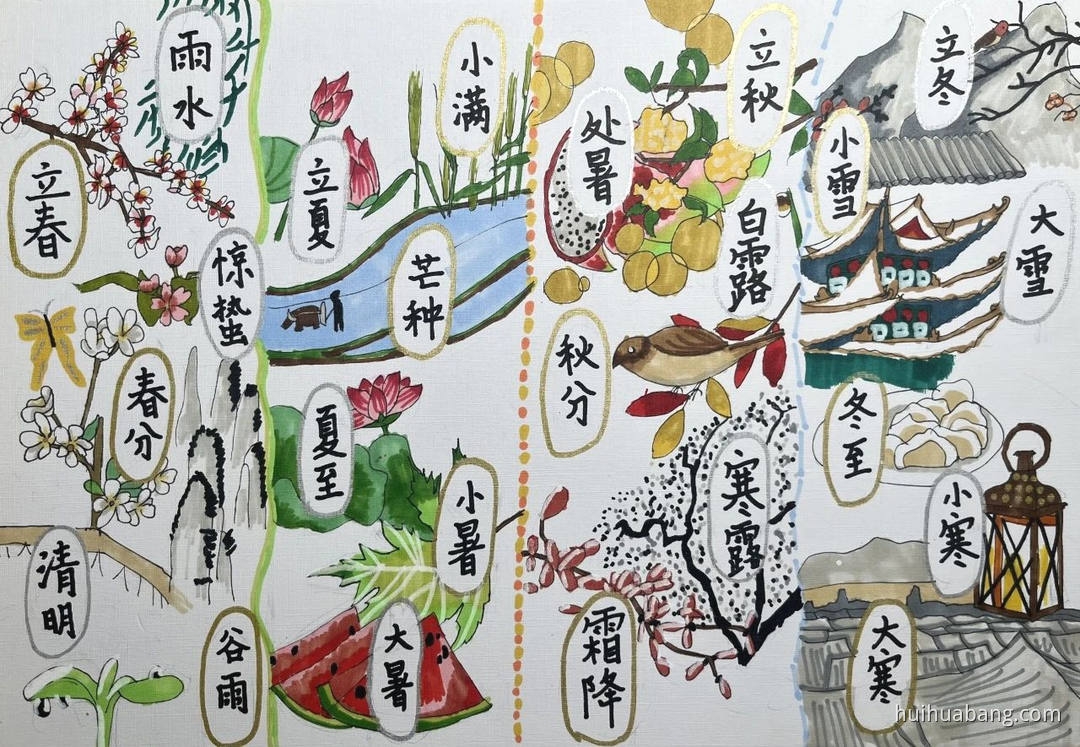 立春
雨水
惊蛰
春分
清明
谷雨
立夏
小满
芒种
夏至
小暑
大暑
立秋
处暑
白露
秋分
寒露
霜降
立冬
小雪
大雪
冬至
小寒
大寒
huihuabang.com